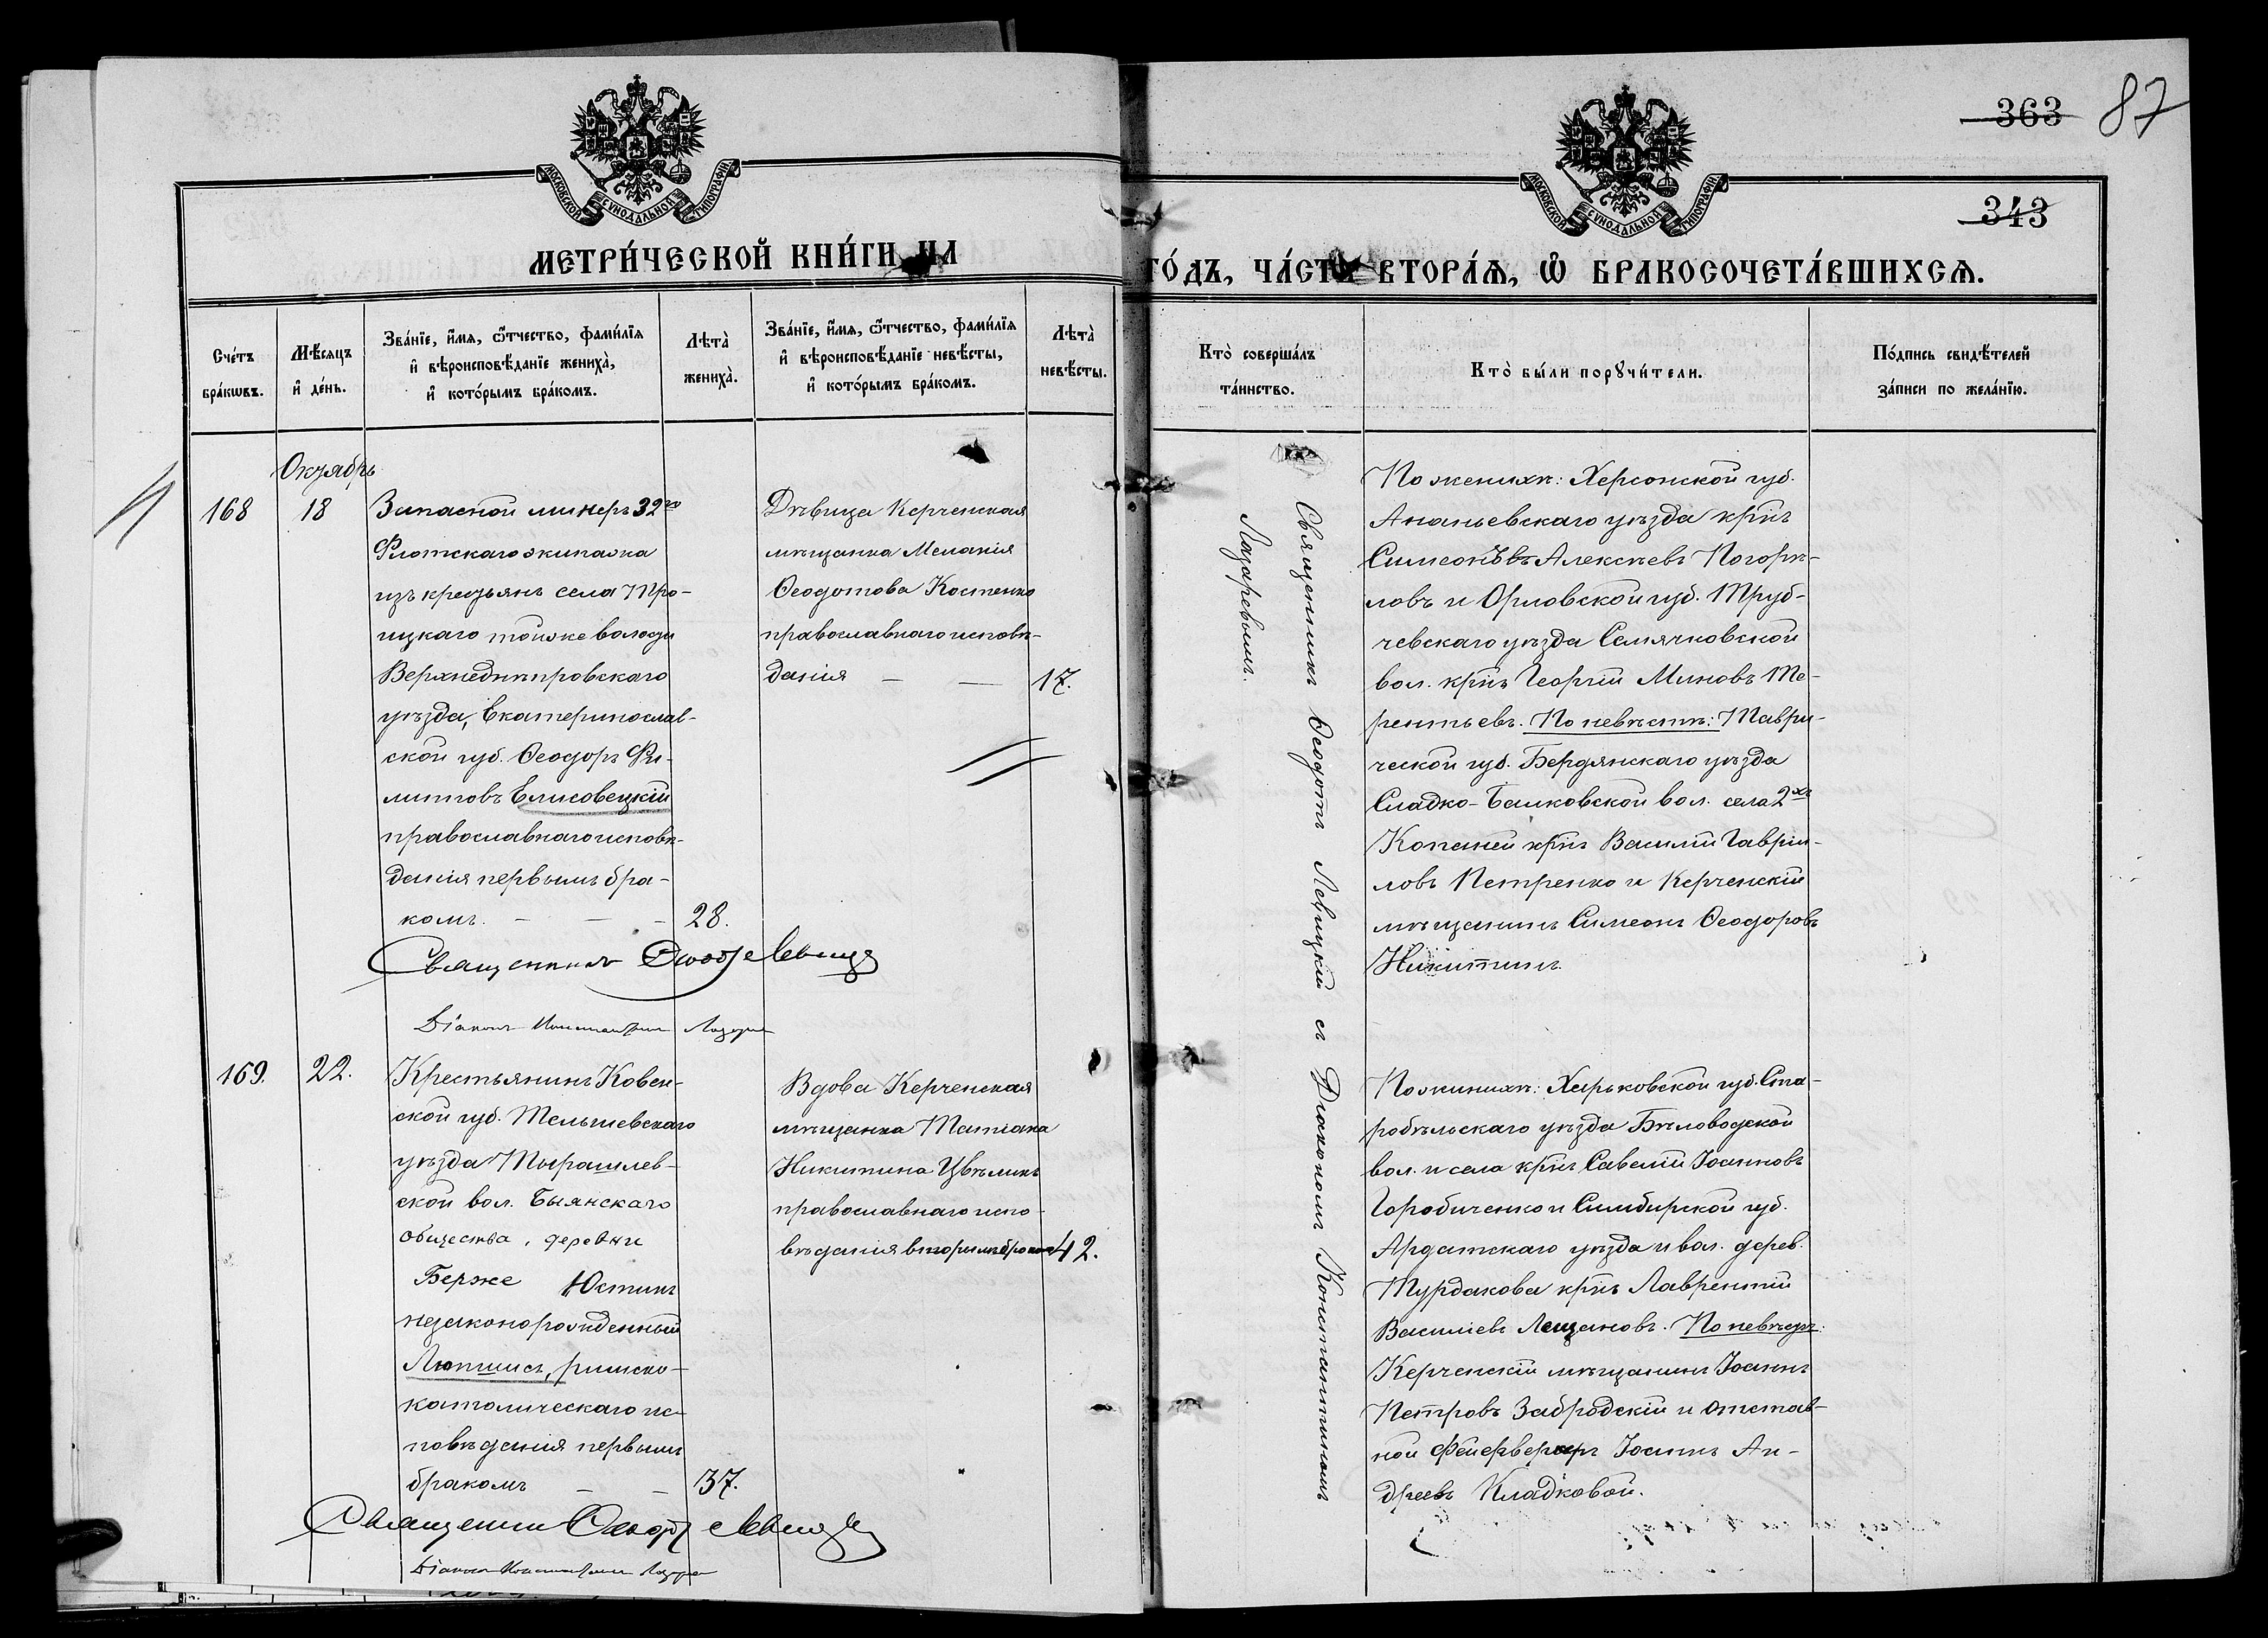 363 87
343
МОСКОВСКОЙ СУНОДАЛЬНОЙ ТИПОГРАФІИ
МОСКОВСКОЙ СУНОДАЛЬНОЙ ТИПОГРАФІИ
МЕТРИ́ЧЕСКОЙ КНИ́ГИ НА
ГО́ДЪ, ЧА́СТЬ ВТОРА́Ѧ, Ѽ БРАКОСОЧЕТА́ВШИХСѦ.
Сче́тъ
бра́кѡвъ.
Мѣ́сяцъ
и҆ де́нь.
Зва́нїе, и҆́мѧ, ѻ҆́тчество, фами́лїѧ
и҆ вѣроисповѣ́данїе жениха̀,
и҆ кото́рымъ бра́комъ.
Лѣта̀
жениха̀.
Зва́нїе, и҆́мѧ, ѻ҆́тчество, фами́лїѧ
и҆ вѣроисповѣ́данїе невѣ́сты,
и҆ кото́рымъ бра́комъ.
Лѣта̀
невѣ́сты.
Кто̀ соверша́лъ
та́инство.
Кто̀ бы́ли порꙋчи́тели.
По́дпись свидѣ́телей
за́писи по жела́нїю.
Октябрь
168
18
Запасной минеръ 32го
Флотскаго экипажа
изъ крестьянъ села Тро-
ицкаго тойже волости
Верхнеднѣпровскаго
уѣзда, Екатеринослав-
ской губ. Ѳеодоръ Фи-
липповъ Елисовецкій
православнаго исповѣ-
данія первымъ бра-
комъ. — — —
28.
Дѣвица Керченская
мѣщанка Меланія
Ѳеодотова Костенко
православнаго исповѣ-
данія — —
17.
Священникъ Ѳеодотъ Левицкій съ Діакономъ Константиномъ
Лазаревымъ.
По женихѣ: Херсонской губ.
Ананьевскаго уѣзда крнъ
Симеонъ Алексѣевъ Погорѣ-
ловъ и Орловской губ. Труб-
чевскаго уѣзда Семячковской
вол. крнъ Георгій Миновъ Те-
рентьевъ. По невѣстѣ: Таври-
ческой губ. Бердянскаго уѣзда
Сладко-Балковской вол. села 2хъ
Копаней крнъ Василій Гаврии-
ловъ Петренко и Керченскій
мѣщанинъ Симеонъ Ѳеодоровъ
Никитинъ.
Священникъ Ѳеодотъ Левицкій
Діаконъ Константинъ Лазаревъ
169.
22.
Крестьянинъ Ковен-
ской губ. Тельшевскаго
уѣзда Тырашлев-
ской вол. Быянскаго
общества, деревни
Берже Юстинъ
незаконорожденный
Люпшисъ, римско-
католическаго ис-
повѣданія первымъ
бракомъ — —
37.
Вдова Керченская
мѣщанка Татіана
Никитина Цвѣлинъ
православнаго испо-
вѣданія вторымъ бракомъ
42.
По женихѣ: Харьковской губ. Ста-
робѣльскаго уѣзда Бѣловодской
вол. и села крнъ Савелій Іоанновъ
Горобиченко и Симбирской губ.
Ардатскаго уѣзда и вол. дерев.
Турдакова крнъ Лаврентій
Василіевъ Лещановъ. По невѣстѣ:
Керченскій мѣщанинъ Іоаннъ
Петровъ Забродскій и отстав-
ной фейерверкеръ Іоаннъ Ан-
дреевъ Кладковой.
Священникъ Ѳеодотъ Левицкій
Діаконъ Константинъ Лазаревъ